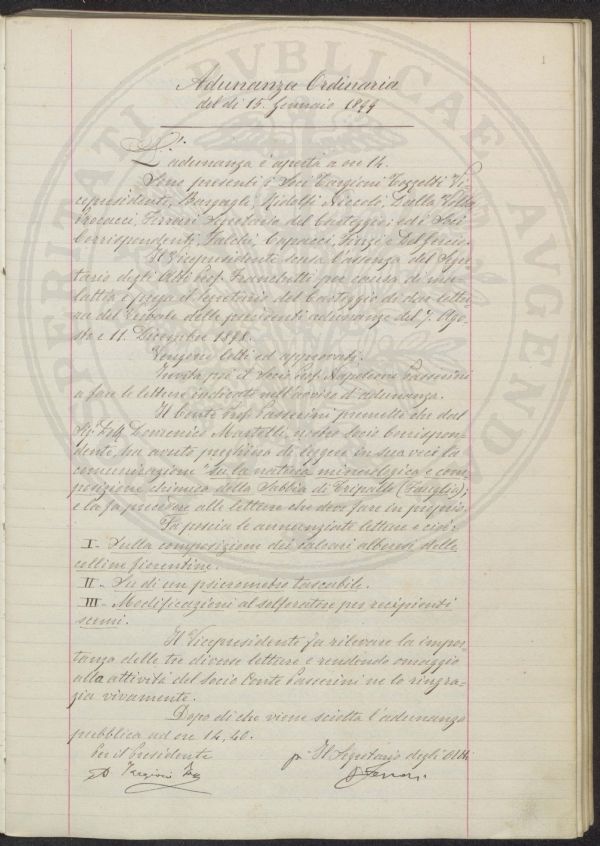 1
Adunanza Ordinaria
del dì 15. Gennaio 1899
L'adunanza è aperta a ore 14.
Sono presenti i Soci Targioni Tozzetti Vi-
cepresidente, Bargagli, Ridolfi, Niccoli, Dalla Volta,
Procacci, Ferrari Segretario del Carteggio; ed i Soci
Corrispondenti, Falchi, Capacci, Pinzi e Del
Il Vicepresidente scusa l'assenza del Segre-
tario degli Atti Prof. Franchetti per causa di ma-
lattia e prega il Segretario del Carteggio di dar lettu-
ra del Verbale delle precedenti adunanze del 7. Ago-
sto e 11. Dicembre 1898.
Vengono letti ed approvati.
Invita poi il Socio Prof. Napoleone Passerini
a fare le letture indicate nell'avviso d'adunanza.
Il Conte Prof. Passerini premette che dal
Sig. Dott. Domenico Martelli, nostro Socio Corrispon-
dente, ha avuto preghiera di leggere in sua vece la
comunicazione "Sulla natura mineralogica e com-
posizione chimica della Sabbia di Tripalle (Fauglia);
e la fa precedere alle letture che deve fare in proprio.
Fa poscia le annunziate letture e cioè:
I - Sulla composizione dei calcari alberesi delle
colline fiorentine.
II - Su di un psicrometro tascabile.
III - Modificazioni al solforatore per recipienti
scemi.
Il Vicepresidente fa rilevare la impor-
tanza delle tre diverse letture e rendendo omaggio
alla attività del Socio Conte Passerini ne lo ringra-
zia vivamente.
Dopo di che viene sciolta l'adunanza
pubblica ad ore 14,40.
Per il Presidente
pr Il Segretario degli Atti
AD Targioni Toz
Ferrari
SPERITATI PVBLICAE AVGENDA